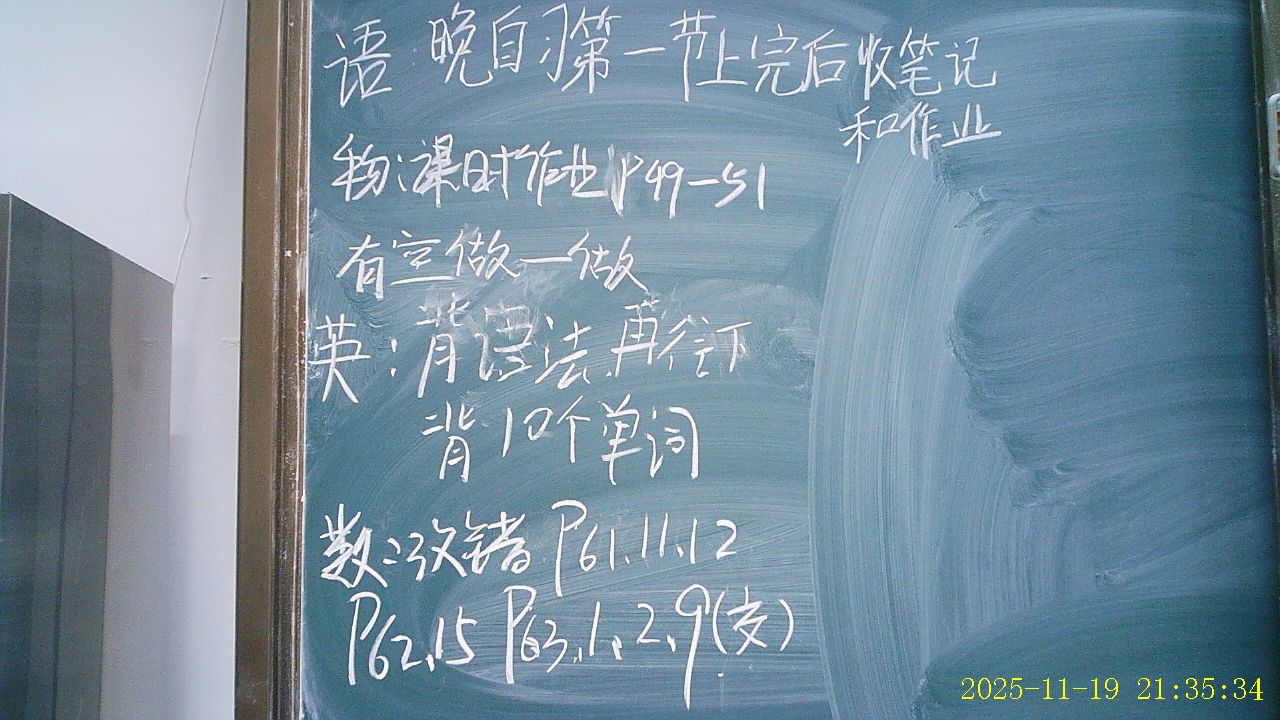 语:晚自习第一节上完后收笔记
和作业
物:课时作业P49-51
有空做一做
英:背语法,再往下
背10个单词
数:改错 P61.11.12
P62.15 P63.1.2.9(交)
2025-11-19 21:35:34